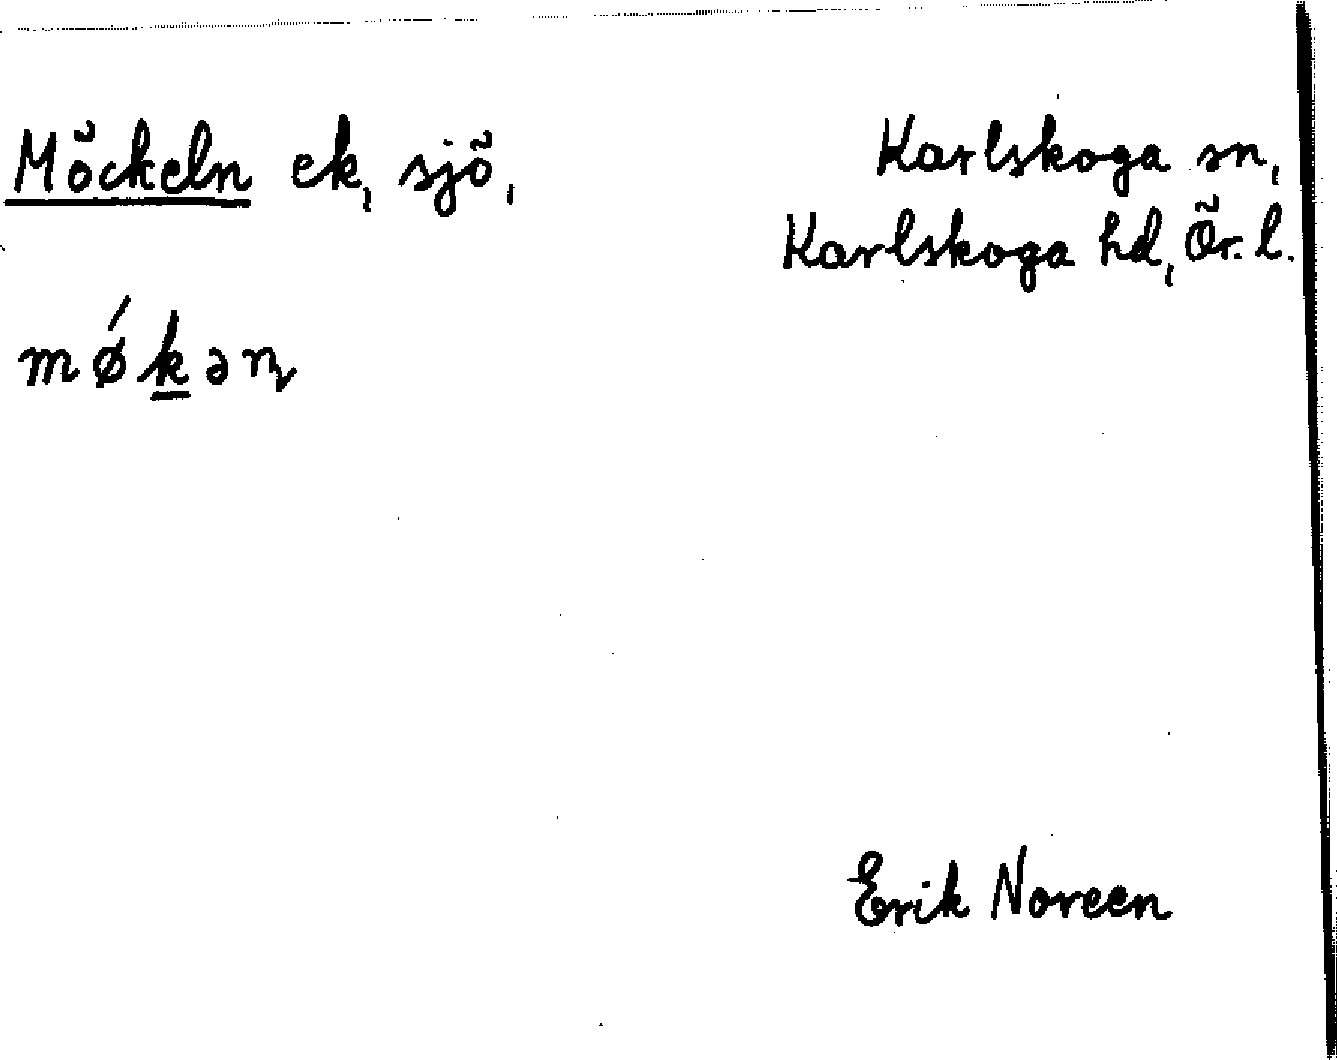 Möckeln ek, sjö,
Karlskoga sn,
Karlskoga hd, Ör. l.
mǿk̲əɳ
Erik Noreen